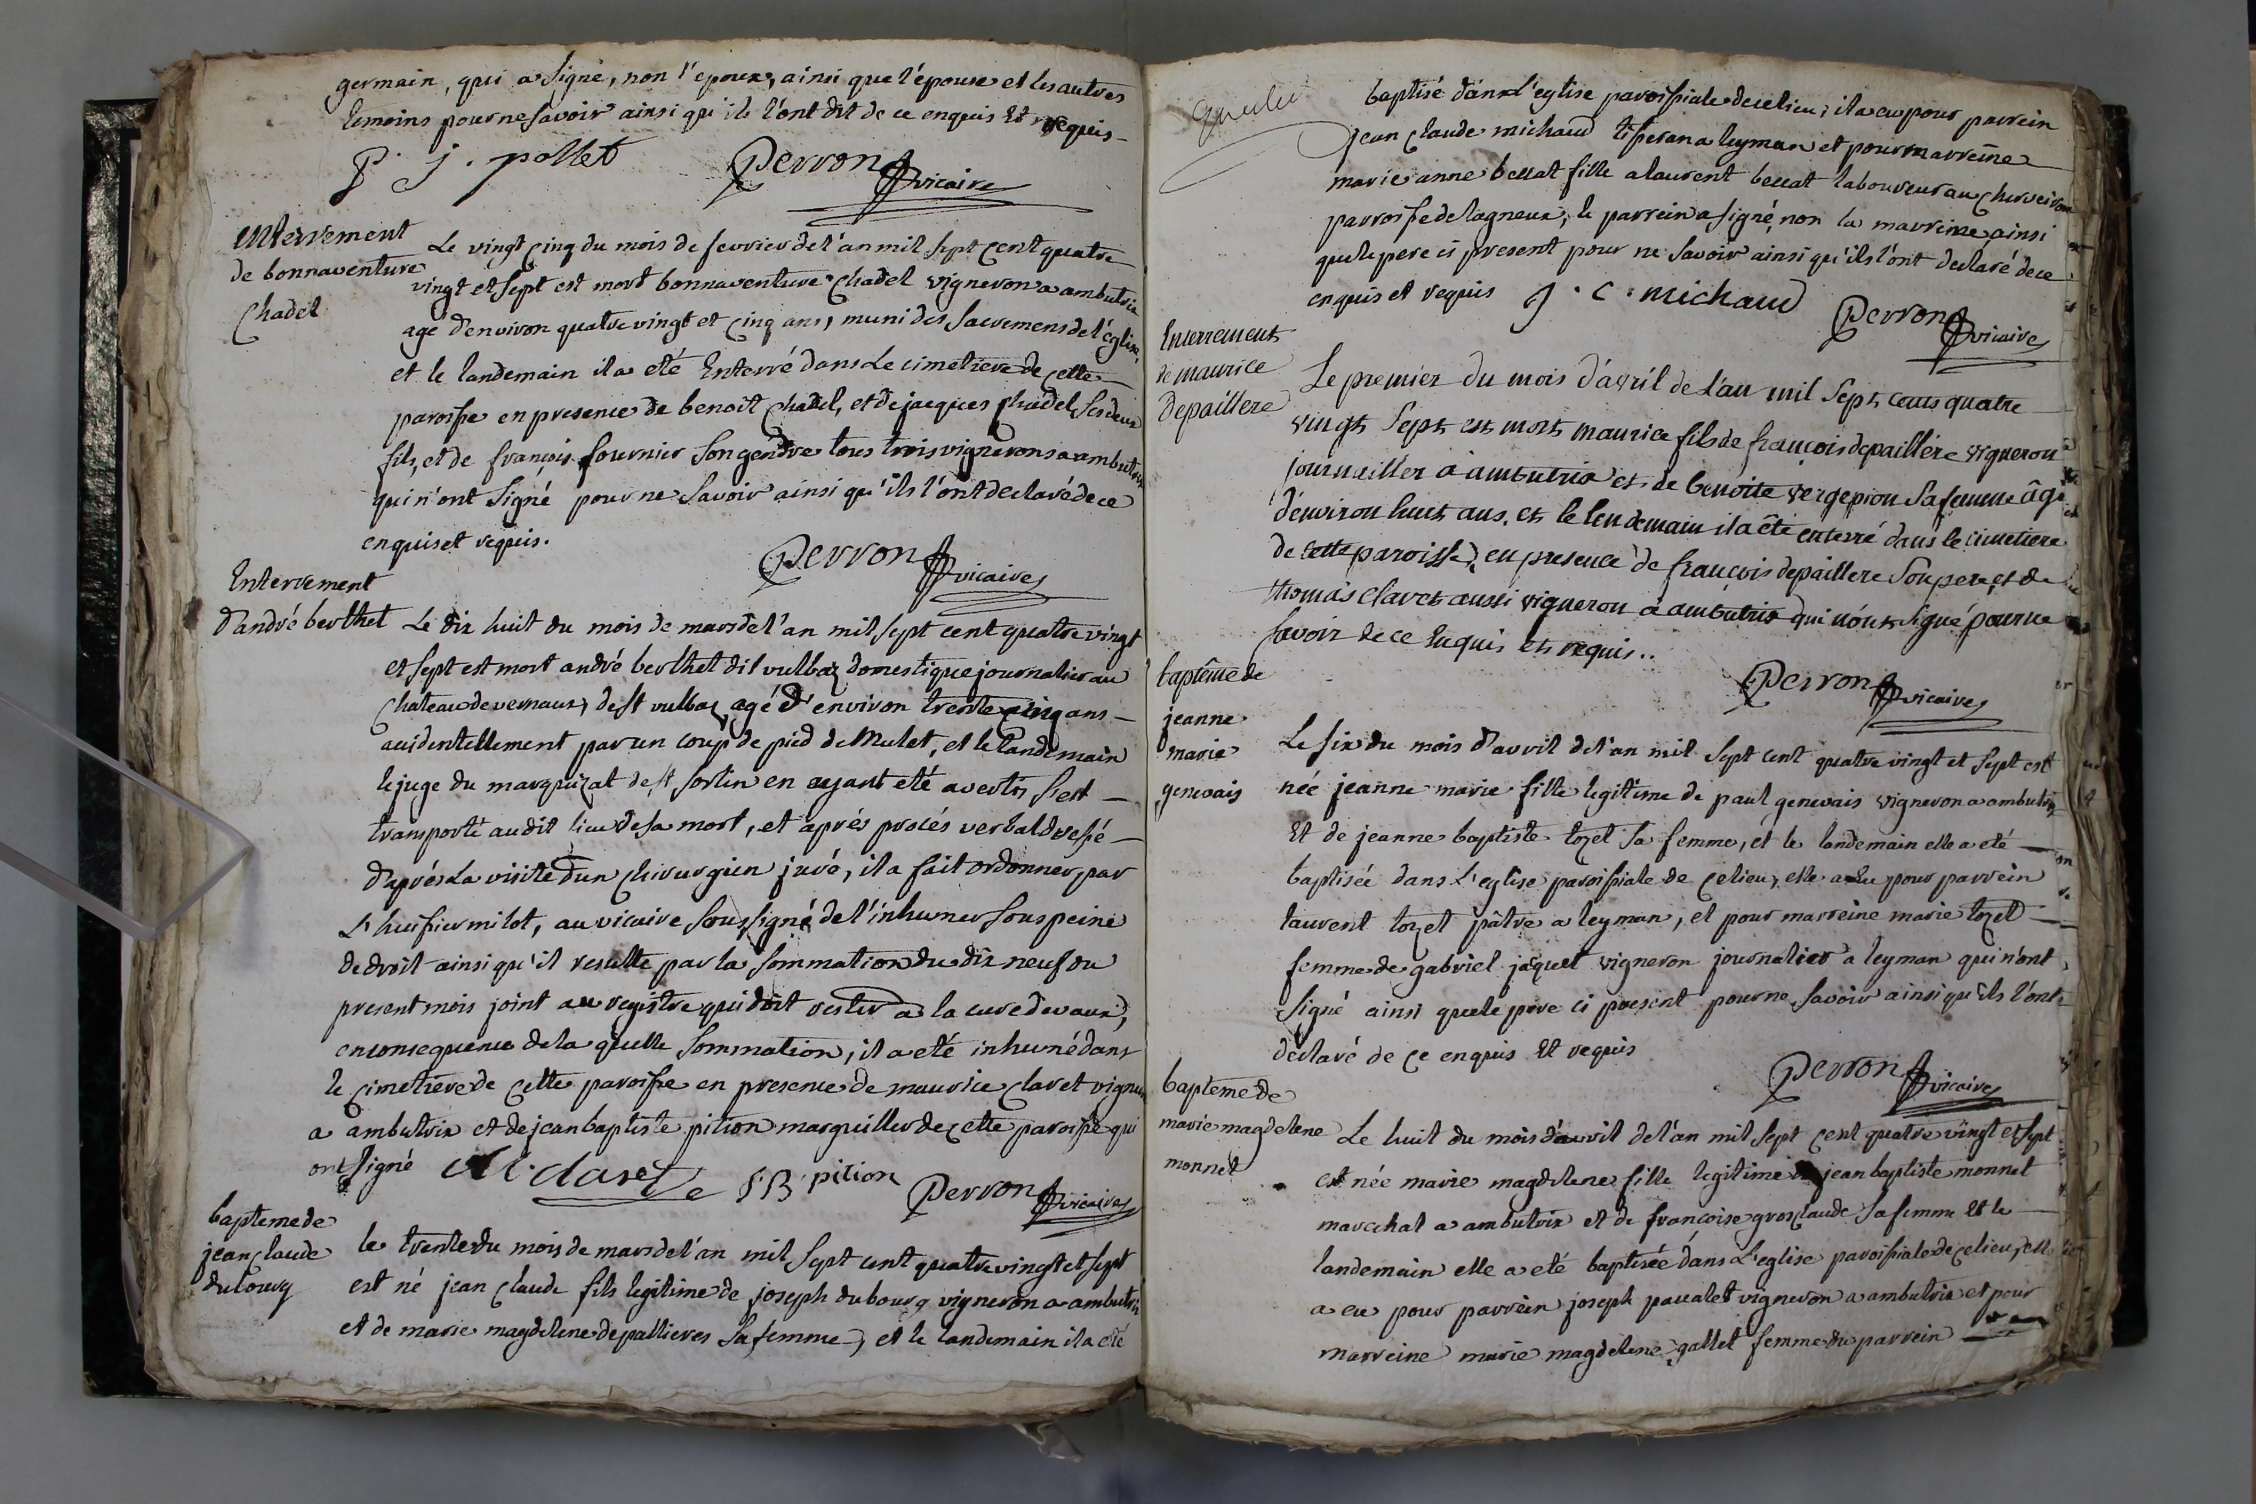 germain, qui a signé, non l'epoux, ainsi que l'épouse et les autres
temoins pour ne savoir ainsi qu'ils l'ont dit de ce enquis et requis
P. j. pollet perron vicaire
enterrement
de bonnaventure
Chadel
Le vingt cinq du mois de fevrier de l'an mil sept cent quatre
vingt et sept est mort bonnaventure Chadel vigneron a ambutrix
agé d'environ quatre vingt et cinq ans, muni des sacremens de l'église,
et le landemain il a eté enterré dans le cimetiere de cette
paroisse en presence de benoit chadel, et de jacques chadel ses deux
fils, et de françois fournier son gendre tous trois vignerons a ambutrix
qui n'ont signé pour ne savoir ainsi qu'ils l'ont declaré de ce
enquis et requis.
perron vicaire
Enterrement
d'andré berthet
Le dix huit du mois de mars de l'an mil sept cent quatre vingt
et sept est mort andré berthet dit vulbaz domestique journalier au
Château de vernaux, de st vulbaz, agé d'environ trente cinq ans
accidentellement par un coup de pied de mulet, et le landemain
le juge du marquizat de st sorlin en ayant eté averti s'est
transporté au dit lieu de sa mort, et aprés procés verbal dressé
d'aprés la visite d'un chirurgien juré, il a fait ordonner par
L'huissier milot, au vicaire soussigné de l'inhumer sous peine
de droit ainsi qu'il resulte par la sommation du dix neuf du
present mois joint au registre qui doit rester a la cure de vaux,
en consequence de la quelle sommation, il a eté inhumé dans
le cimetiere de cette paroisse en presence de maurice claret vigneron
a ambutrix et de jean baptiste pition marguiller de cette paroisse qui
ont signé M. claret J B pition perron vicaire
bapteme de
jean claude
dubourg
le trente du mois de mars de l'an mil sept cent quatre vingt et sept
est né jean claude fils legitime de joseph dubourg vigneron a ambutrix
et de marie magdelene depallieres sa femme, et le landemain il a eté
baptisé dans l'eglise paroissiale de ce lieu; il a eu pour parrein
jean claude michaud tisseran a leyman et pour marreine
marie anne beccat fille a laurent beccat laboureur au
parroisse de lagneux, le parrein a signé, non la marreine ainsi
que le pere ci present pour ne savoir ainsi qu'ils l'ont declaré de ce
enquis et requis J. C. michaud perron vicaire
Enterrement
de maurice
depaillere
Le premier du mois d'avril de l'an mil sept cents quatre
vingt sept est mort maurice fils de françois depaillere vigneron
journaillier à ambutrix et de benoite vergepion sa femme âgé
d'environ huit ans, et le lendemain il a êté enterré dans le cimetiere
de cette paroisse, en presence de françois depaillere son pere, et de
thomas claret aussi vigneron à ambutrix qui n'ont signé pour ne
savoir de ce enquis et requis..
perron vicaire
baptême de
jeanne
marie
genevais
Le six du mois d'avril de l'an mil sept cent quatre vingt et sept est
née jeanne marie fille legitime de paul genevais vigneron a ambutrix
et de jeanne baptiste tozet sa femme, et le landemain elle a eté
baptisée dans l'eglise paroissiale de ce lieu, elle a eu pour parrein
laurent tozet pâtre a leyman, et pour marreine marie tozet
femme de gabriel jaquet vigneron journalier a leyman qui n'ont
signé ainsi que le pere ci present pour ne savoir ainsi qu'ils l'ont
declaré de ce enquis et requis
perron vicaire
bapteme de
marie magdelene
monnet
Le huit du mois d'avril de l'an mil sept cent quatre vingt et sept
est née marie magdelene fille legitime jean baptiste monnet
marechal a ambutrix et de françoise grosclaude sa femme et le
landemain elle a eté baptisée dans l'eglise paroissiale de ce lieu, elle
a eu pour parrein joseph pacalet vigneron a ambutrix et pour
marreine marie magdelene gallet femme du parrein